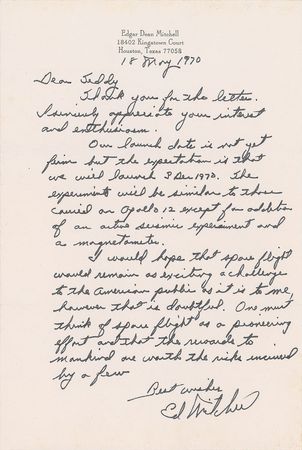 Edgar Dean Mitchell
18402 Kingstown Court
Houston, Texas 77058
18 May 1970
Dear Teddy
Thank you for the letter.
I sincerely appreciate your interest
and enthusiasm.
Our launch date is not yet
firm but the expectation is that
we will launch 3 Dec 1970. The
experiments will be similar to those
carried on Apollo 12 except for addition
of an active seismic experiment and
a magnetometer.
I would hope that space flight
would remain as exciting a challenge
to the American public as it is to me,
however that is doubtful. One must
think of space flight as a pioneering
effort and that the rewards to
mankind are worth the risks incurred
by a few
Best wishes
Ed Mitchell